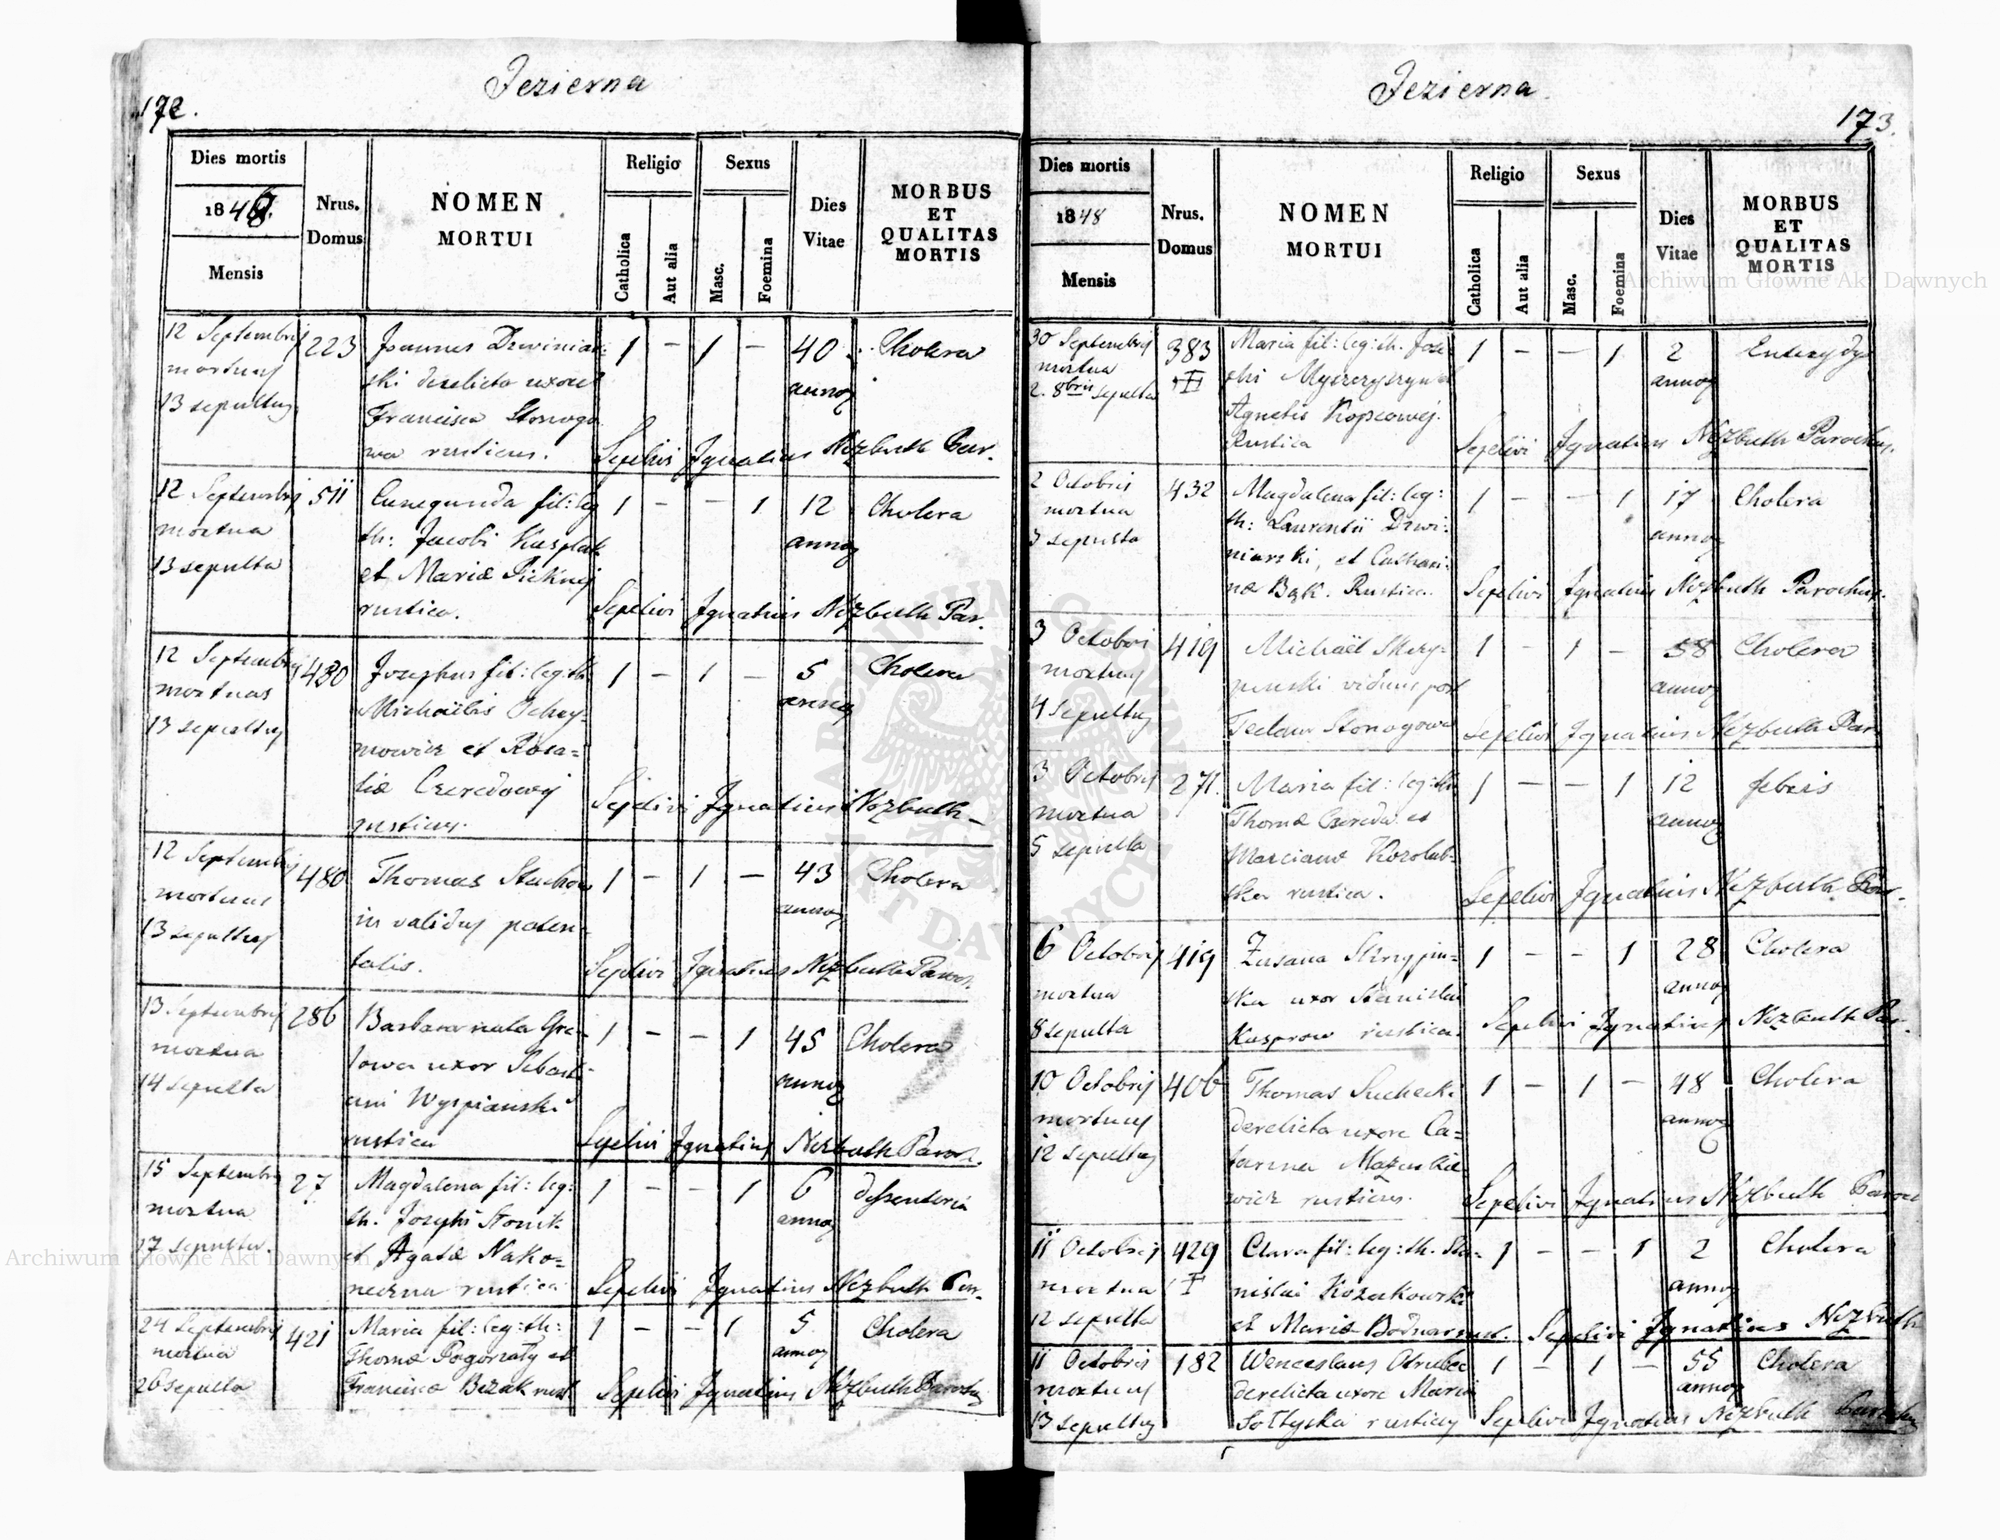 Jezierna
172.
Dies mortis
1848.
Mensis
Nrus.
Domus
NOMEN
MORTUI
Religio
Catholica
Aut alia
Sexus
Masc.
Foemina
Dies
Vitae
MORBUS
ET
QUALITAS
MORTIS
12 Septembris 223 Joannes Dzwiniar- 1 – 1 – 40 Cholera
mortuus ski derelicta uxore annor
13 sepultus Francisca Stonogo
wa rusticus. Sepelivi Ignatius Nezbuth Par.
12 Septembris 511 Cunegunda fil: leg 1 – – 1 12 Cholera
mortua th: Jacobi Kasprak annor
13 sepulta et Mariæ Pieknej
rustica. Sepelivi Ignatius Nezbuth Par.
12 Septembris 480 Josephus fil: leg: th 1 – 1 – 5 Cholera
mortuus Michaëlis Ochry- annor
13 sepultus mowicz et Rosa=
liæ Czeredowej
rusticus. Sepelivi Ignatius Nezbuth
12 Septembris 480 Thomas Stachow 1 – 1 – 43 Cholera
mortuus in validus paten- annor
13 sepultus talis. Sepelivi Ignatius Nezbuth Paroch.
13 Septembris 286 Barbara nata Gra- 1 – – 1 45 Cholera
mortua lowa uxor Sebasti- annor
14 sepulta ani Wyspianski
rustica Sepelivi Ignatius Nezbuth Paroch.
15 Septembris 27 Magdalena fil: leg: 1 – – 1 6 dyssenteria
mortua th. Josephi Stonik annor
17 sepulta. et Agatæ Nako=
neczna rustica Sepelivi Ignatius Nezbuth Par.
24 Septembris 421 Maria fil: leg: th: 1 – – 1 5 Cholera
mortua Thomæ Pogorzały et annor
26 sepulta Franciscæ Bezak rust Sepelivi Ignatius Nezbuth Parochus
Jezierna
173.
Dies mortis
1848
Mensis
Nrus.
Domus
NOMEN
MORTUI
Religio
Catholica
Aut alia
Sexus
Masc.
Foemina
Dies
Vitae
MORBUS
ET
QUALITAS
MORTIS
30 Septembris 383 Maria fil: leg: th. Jose 1 – – 1 2
mortua phi annor
2. 8bris sepulta Agnetis Kopcowej.
Rustica Sepelivi Ignatius Nezbuth Parochus.
2 Octobris 432 Magdalena fil: leg: 1 – – 1 17 Cholera
mortua th: Laurentii Dzwi- annor
3 sepulta niarski, et Cathari-
næ Bąk. Rustica. Sepelivi Ignatius Nezbuth Parochus.
3 Octobris 419 Michaël Skry- 1 – 1 – 58 Cholera
mortuus pinski viduus post annor
4 sepultus Teclam Stonogowa Sepelivi Ignatius Nezbuth Par.
3 Octobris 271. Maria fil: leg: th 1 – – 1 12 febris
mortua Thomæ Czereda et annor
5 sepulta Marciana Korolub-
ska rustica. Sepelivi Ignatius Nezbuth Par.
6 Octobris 419 Zusana Skrypin- 1 – – 1 28 Cholera
mortua ska uxor Stanislai annor
8 sepulta Kasprow rustica. Sepelivi Ignatius Nezbuth Par.
10 Octobris 406 Thomas Suchecki 1 – 1 – 48 Cholera
mortuus derelicta uxore Ca= annor
12 sepultus tarina Mazurkie
wicz rusticus. Sepelivi Ignatius Nezbuth Paroch
11 Octobris 429 Clara fil: leg: th. Sta= 1 – – 1 2 Cholera
mortua I nislai Kozakowski annor
12 sepulta et Mariæ Bodnar rust. Sepelivi Ignatius Nezbuth
11 Octobris 182 Wenceslaus Otruba 1 – 1 – 55 Cholera
mortuus derelicta uxore Maria annor
13 sepultus Sołtyska rusticus Sepelivi Ignatius Nezbuth Parochus
Archiwum Główne Akt Dawnych
Archiwum Główne Akt Dawnych
ARCHIWUM GŁÓWNE AKT DAWNYCH